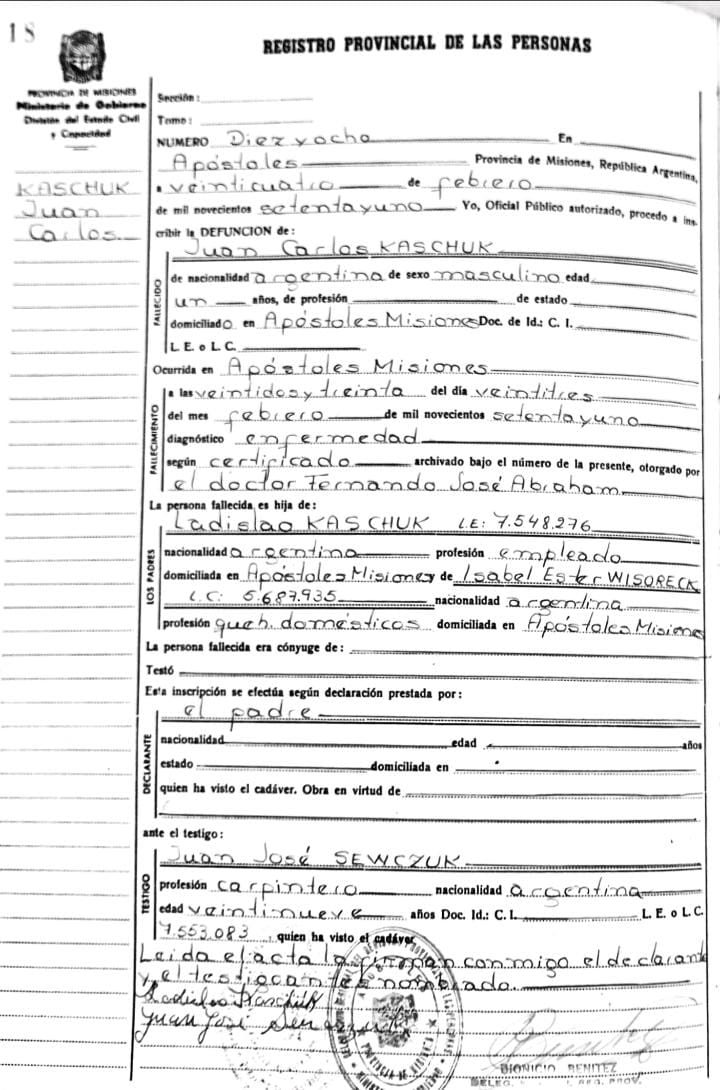 18
REGISTRO PROVINCIAL DE LAS PERSONAS
PROVINCIA DE MISIONES
Ministerio de Gobierno
División del Estado Civil
y Capacidad
KASCHUK
Juan
Carlos
Sección :
Tomo :
NUMERO Diez y ocho En
Apóstoles Provincia de Misiones, República Argentina,
a veinticuatro de febrero
de mil novecientos setenta y uno Yo, Oficial Público autorizado, procedo a ins-
cribir la DEFUNCION de :
Juan Carlos KASCHUK
FALLECIDO
de nacionalidad argentina de sexo masculino edad
un años, de profesión de estado
domiciliado en Apóstoles Misiones Doc. de Id.: C. I.
L. E. o L. C.
Ocurrida en Apóstoles Misiones
FALLECIMIENTO
a las veintidos y treinta del día veintitres
del mes febrero de mil novecientos setenta y uno
diagnóstico enfermedad
según certificado archivado bajo el número de la presente, otorgado por
el doctor Fernando José Abraham
La persona fallecida es hija de :
LOS PADRES
Ladislao KASCHUK L.E: 7.548.276
nacionalidad argentina profesión empleado
domiciliada en Apóstoles Misiones y de Isabel Ester WISORECK
L.C: 5.687.935 nacionalidad argentina
profesión queh. domésticos domiciliada en Apóstoles Misiones
La persona fallecida era cónyuge de :
Testó
Esta inscripción se efectúa según declaración prestada por :
DECLARANTE
el padre
nacionalidad edad años
estado domiciliada en
quien ha visto el cadáver. Obra en virtud de
ante el testigo :
TESTIGO
Juan José SEWCZUK
profesión carpintero nacionalidad argentina
edad veintinueve años Doc. Id.: C. I. L. E. o L. C.
7.553.083 quien ha visto el cadáver
Leida el acta la firman conmigo el declarante
y el testigo antes nombrado.
Ladislao Kaschuk
Juan José Sewczuk
PROVINCIA DE MISIONES
DIONICIO BENITEZ
REG. PROV.